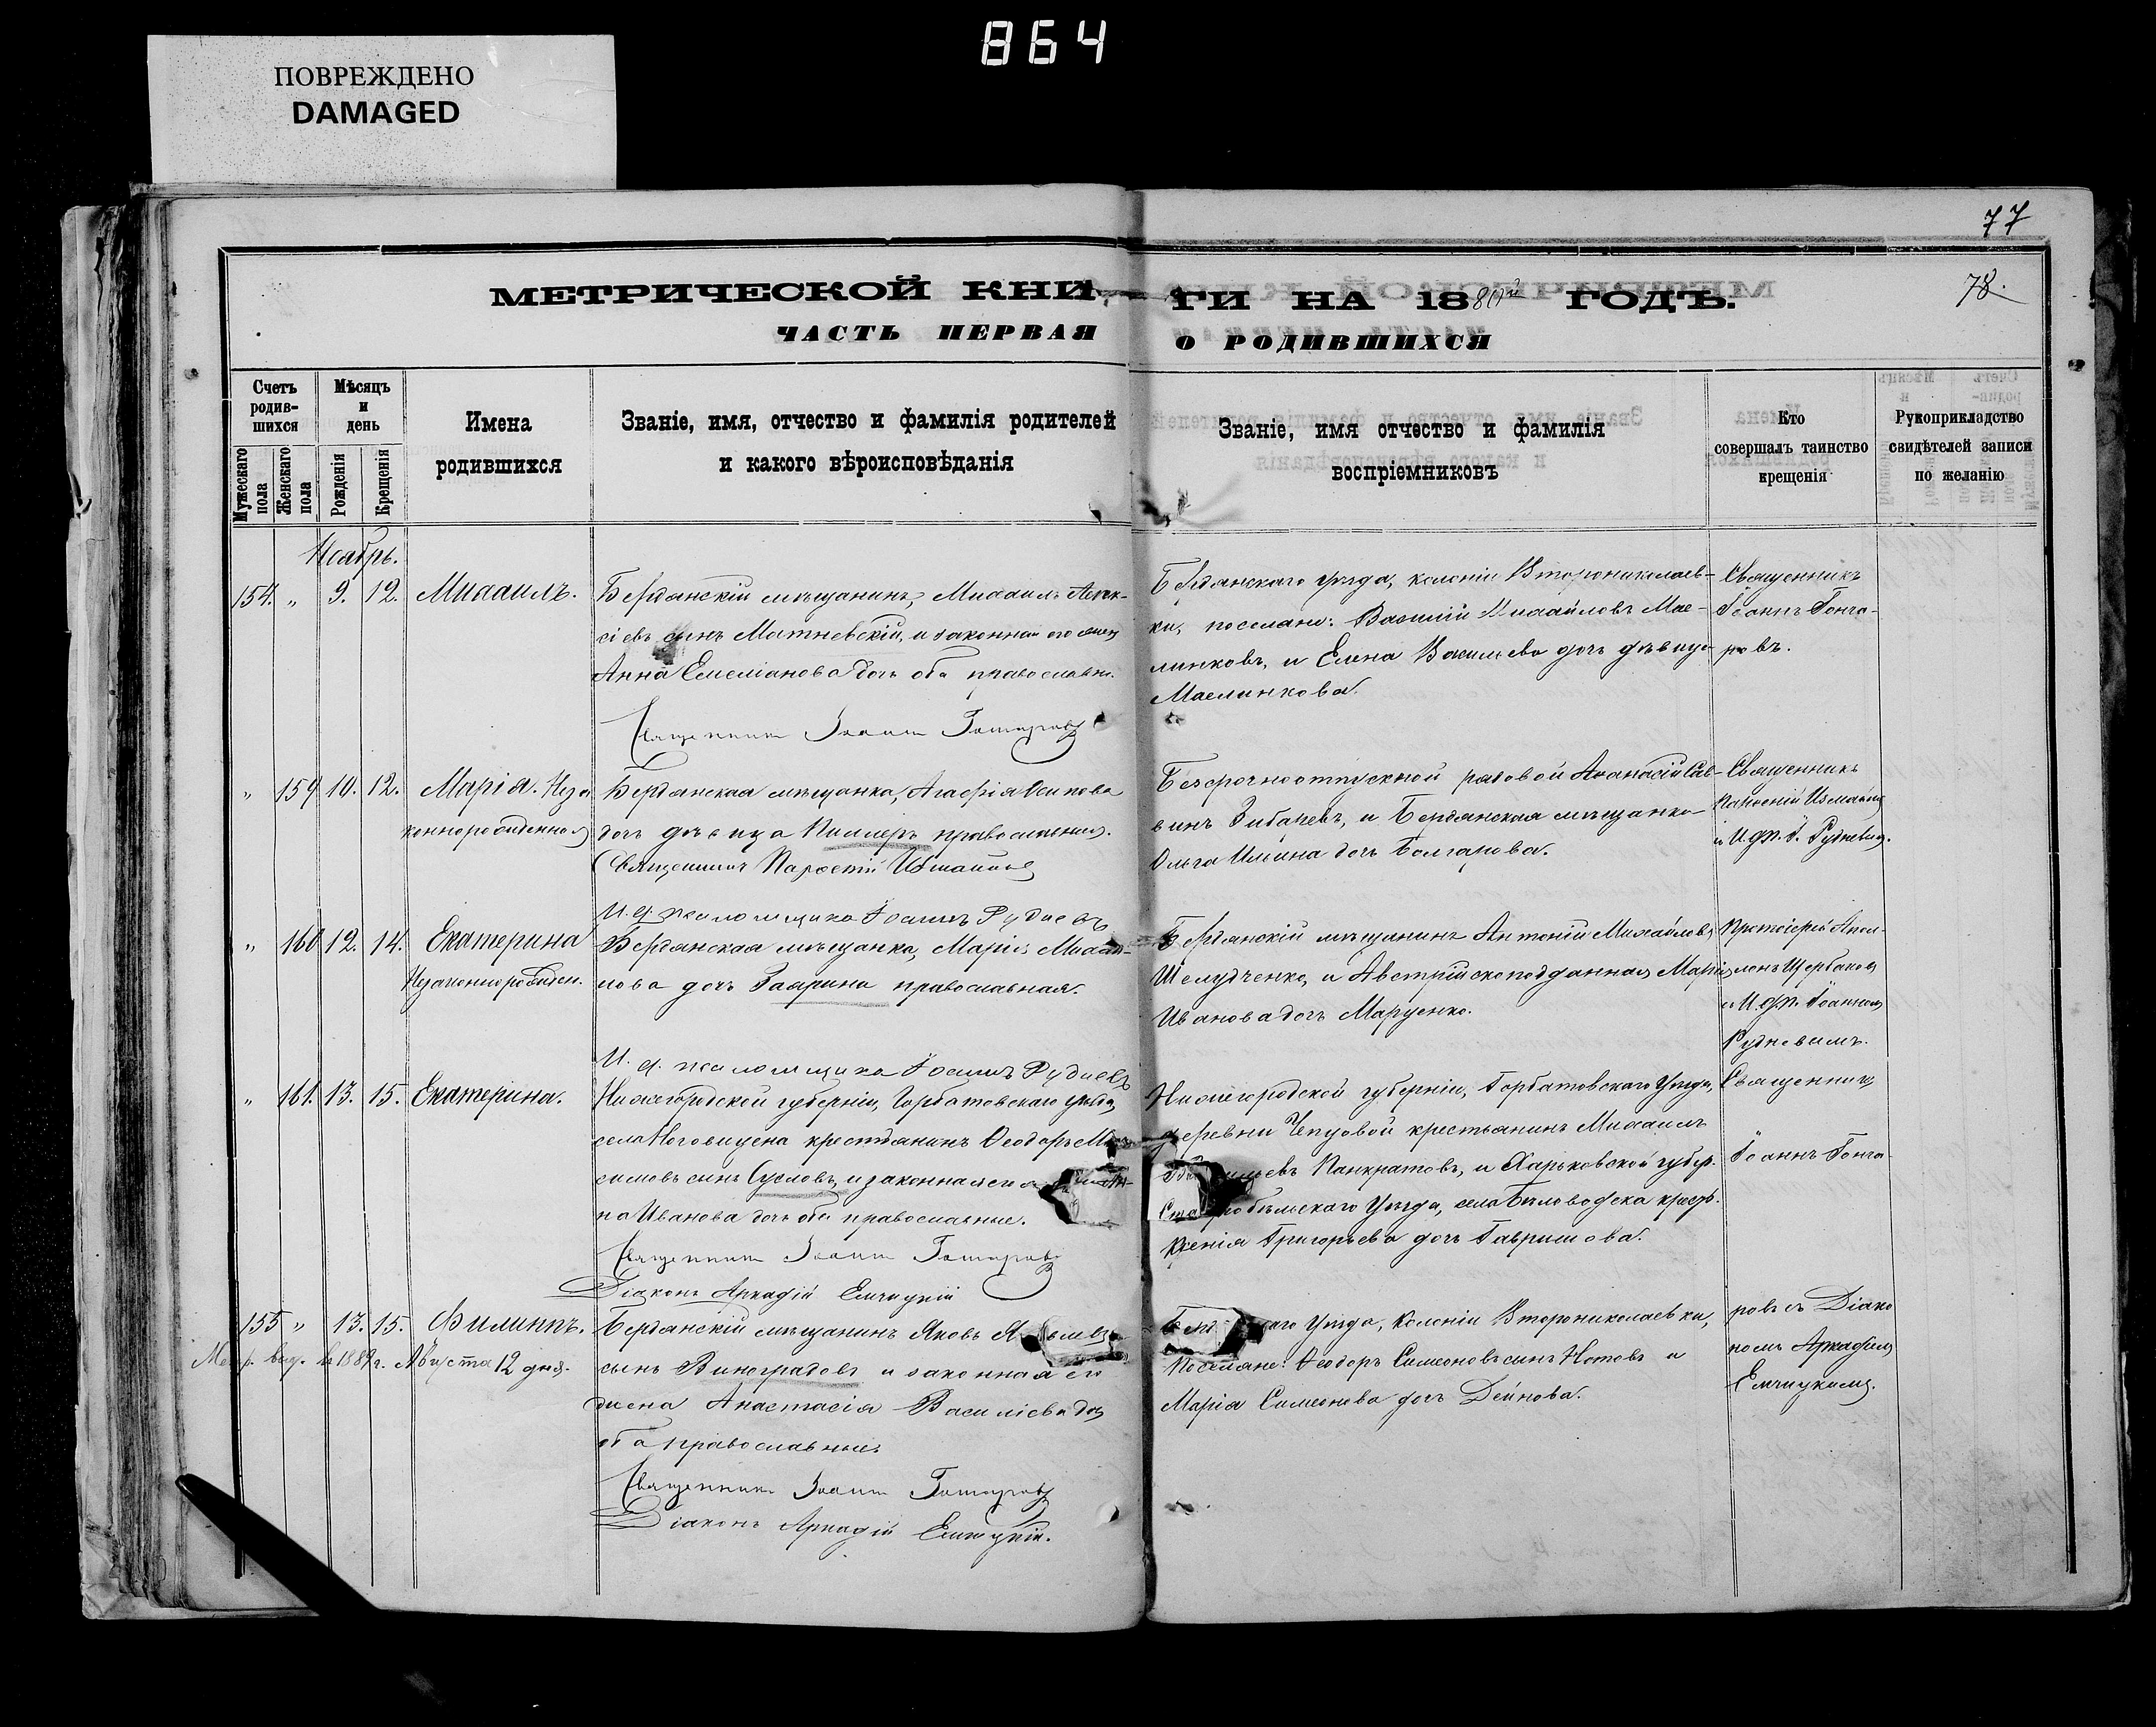 864
ПОВРЕЖДЕНО
DAMAGED
77
78.
МЕТРИЧЕСКОЙ КНИ-
ГИ НА 1880й ГОДЪ.
ЧАСТЬ ПЕРВАЯ
О РОДИВШИХСЯ
Счетъ родив-шихся
Мужескаго пола
Женскаго пола
Мѣсяцъ и день
Рожденія
Крещенія
Имена
родившихся
Званіе, имя, отчество и фамилія родителей
и какого вѣроисповѣданія
Званіе, имя отчество и фамилія
воспріемниковъ
Кто
совершалъ таинство
крещенія
Рукоприкладство
свидѣтелей записи
по желанію
Ноябрь.
154. „ 9. 12. Михаилъ.
Бердянскій мѣщанинъ, Михаилъ Алек-
сіевъ сынъ Матневскій, и законная его жена
Анна Емеліанова дочь оба православн.
Священникъ Іоаннъ Гончаровъ
Бердянскаго уѣзда, колоніи Второниколаев-
ки, поселяне: Василій Михайловъ Мас-
линковъ, и Елена Васильева дочь дѣвица
Маслинкова.
Священникъ
Іоаннъ Гонча-
ровъ.
„ 159 10. 12. Марія. Неза
коннорожденная
Бердянская мѣщанка, Агафія Осипова
дочь дѣвица Пиллеръ православная.
Священникъ Парфеній Измайловъ
И. д. псаломщика Іоаннъ Рудневъ
Безсрочноотпускной рядовой Афанасій Сав-
винъ Зибаревъ, и Бердянская мѣщанка
Ольга Ильина дочь Болгарова.
Священникъ
Парфеній Измайловъ
и И. д. п. І. Рудневъ.
„ 160 12. 14. Екатерина
Незаконнорожден.
Бердянская мѣщанка, Марія Михаи-
лова дочь Гаврина православная.
И. д. псаломщика Іоаннъ Рудневъ
Бердянскій мѣщанинъ Антоній Михайловъ
Шелудченко, и Австрійскоподданная Марія
Иванова дочь Марусенко.
Протоіерей Апол-
лонъ Щербаковъ
и И. д. п. Іоанномъ
Рудневымъ.
„ 161. 13. 15. Екатерина.
Нижегородской губерніи, Горбатовскаго уѣзда,
села крестьянинъ Ѳеодоръ
симовъ сынъ Сусловъ, и законная
на Иванова дочь оба православные.
Священникъ Іоаннъ Гончаровъ
Діаконъ Аркадій Емчицкій
Нижегородской губерніи, Горбатовскаго Уѣзда,
деревни Чепуовой крестьянинъ Михаилъ
Панкратовъ, и Харьковской губер.
Старобѣльскаго Уѣзда, села Бѣловодска крест.
Ксенія Григорьева дочь Гавришова.
Священникъ
Іоаннъ Гонча-
155 „ 13. 15. Филиппъ.
Метр. выд. въ 1889 г. Августа 12 дня.
Бердянскій мѣщанинъ Яковъ
сынъ Виноградовъ и законная его
жена Анастасія Васильева дочь
оба православные
Священникъ Іоаннъ Гончаровъ
Діаконъ Аркадій Емчицкій.
Уѣзда, Колоніи Второниколаевки,
Поселяне: Ѳеодоръ Симеоновъ сынъ Нотовъ и
Марія Симеонова дочь Дейнова.
ровъ съ Діако
номъ Аркадіемъ
Емчицкимъ.